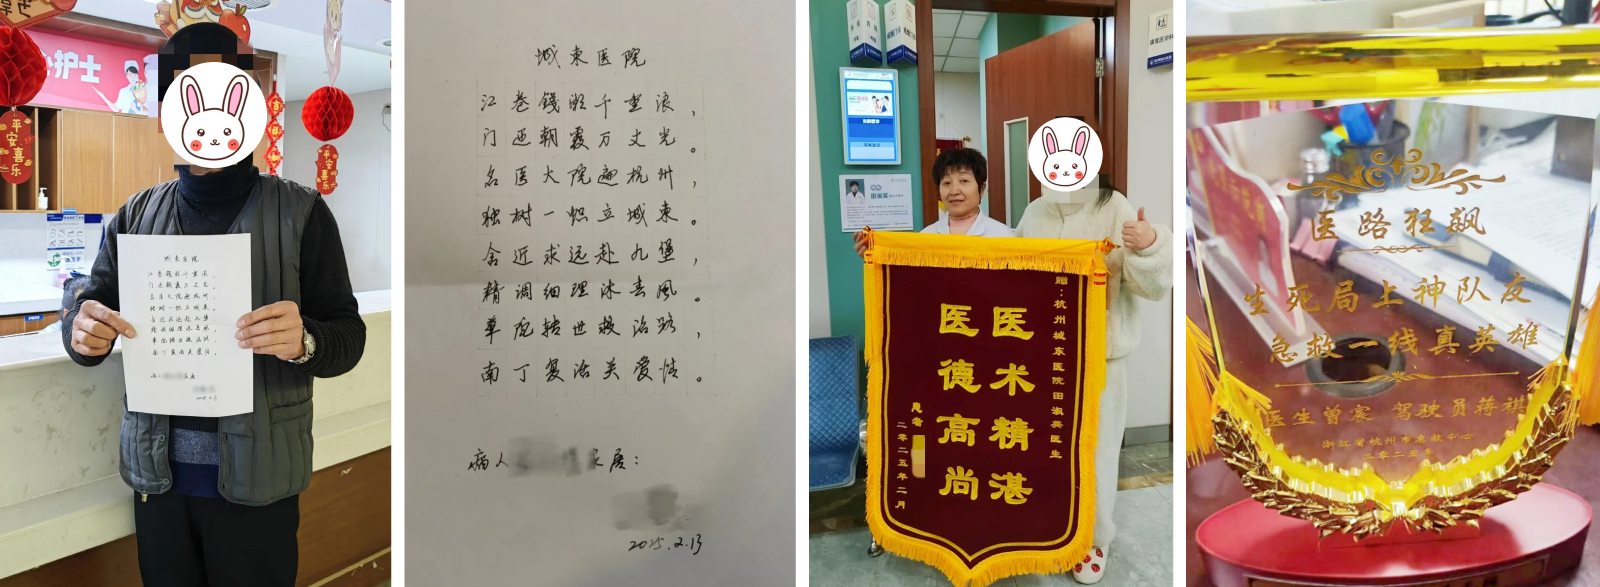 护士
平安喜乐
平安喜乐
城东医院
江卷钱潮千重浪，
门迎朝霞万丈光。
名医大院遍杭州，
独树一帜立城东。
舍近求远赴九堡，
精调细理沐春风。
华佗转世救治路，
南丁复活关爱情。
病人
家居：
2025.2.13
赠：杭州城东医院田淑英医生
医术精湛
医德高尚
患者
二零二五年二月
医路狂飙
生死局上神队友
急救一线真英雄
医生曾宸 驾驶员蒋祺
浙江省杭州市急救中心
二零二五年